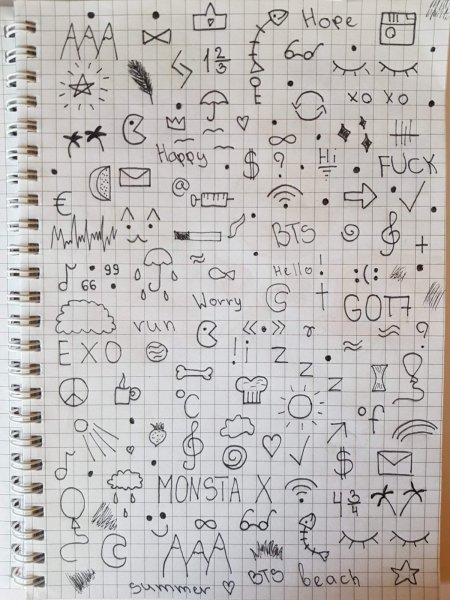 Hope
AAA
1 2/3
xo xo
Happy
$ ? Hi
FUCK
€ @
BTS
Hello!
66 99
Worry
GOT7
run
« • » r ?
EXO
! i z z z
°C
°f
$
MONSTA X
4 3/4
AAA
BTS
summer beach